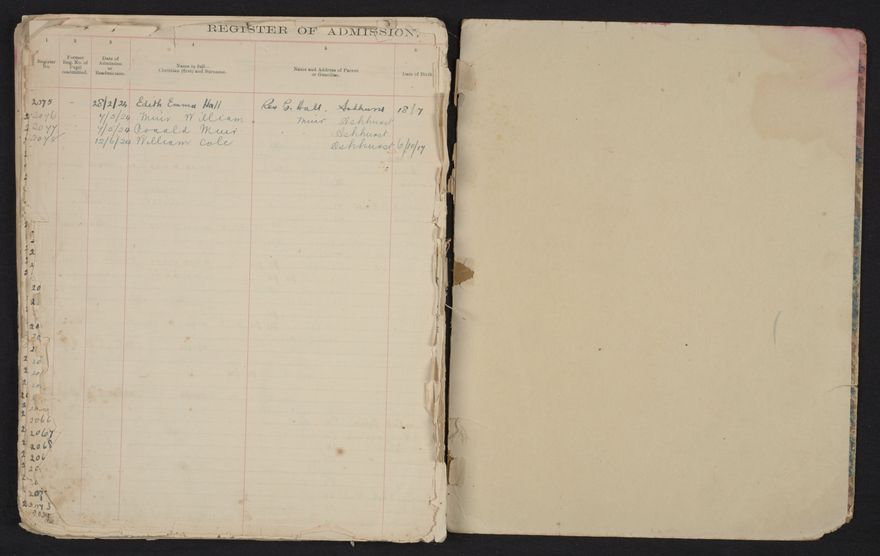 REGISTER OF ADMISSION.
1 2 3 4 5 6
Register No. Former Reg. No. of Pupil readmitted. Date of Admission or Readmission. Name in full— Christian (first) and Surname. Name and Address of Parent or Guardian. Date of Birth
2075 - 28/2/24 Edith Emma Hall Rev G. Hall. Ashhurst 18/7
2076 7/5/24 Muir William Muir Ashhurst
2077 7/5/24 Donald Muir Ashhurst
2078 12/6/24 William Cole Ashhurst 6/10/17
20
20
2066
2067
2068
206
207